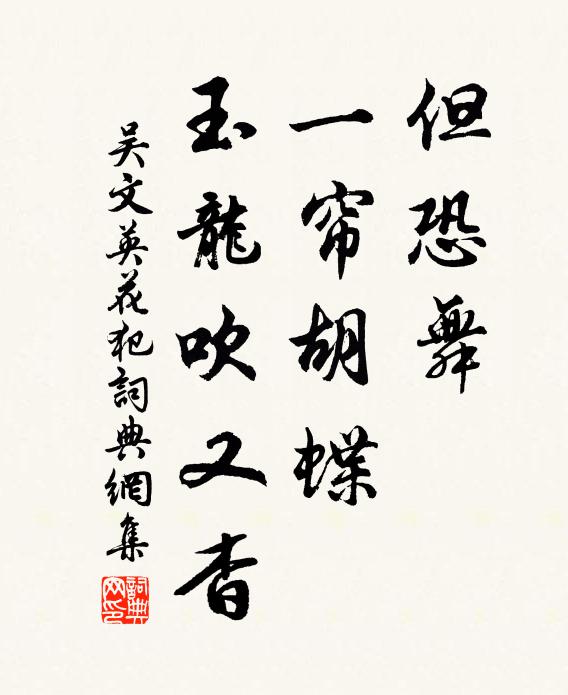 但恐舞
一帘胡蝶
玉龍吹又杳
吴文英花犯詞典網集
詞典网印